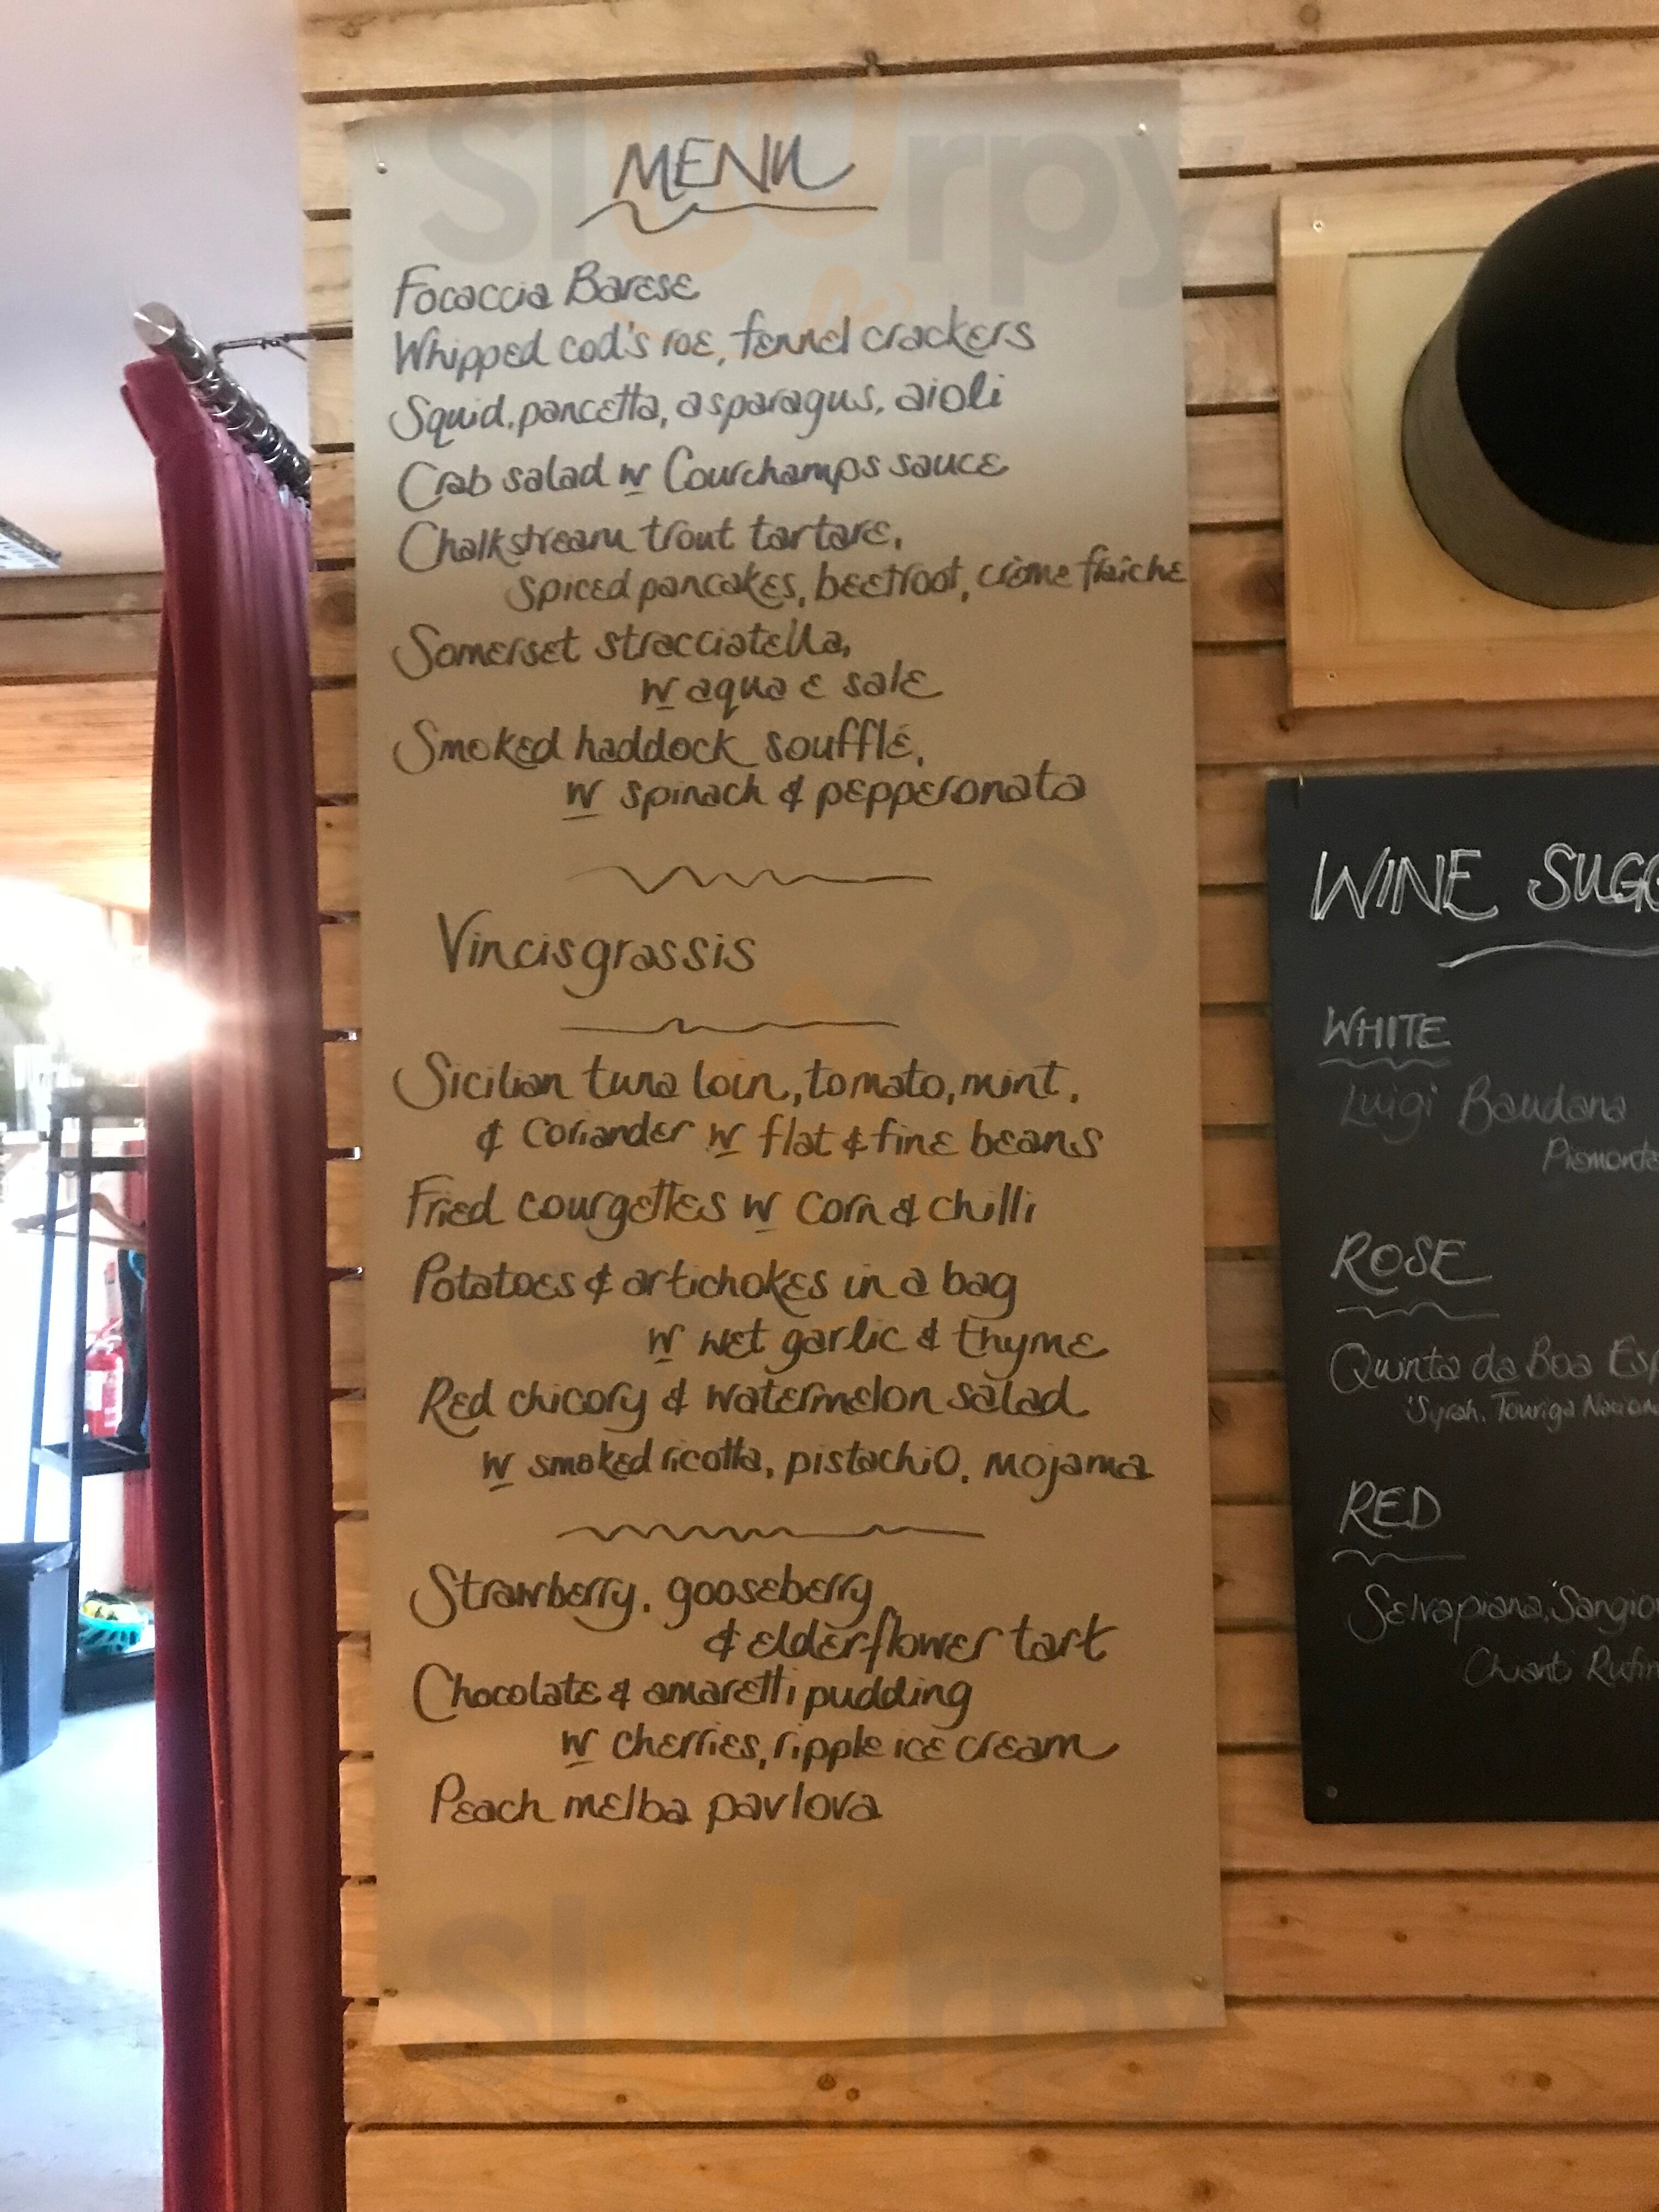 MENU
Focaccia Barese
Whipped cod's roe, fennel crackers
Squid, pancetta, asparagus, aioli
Crab salad w Courchamps sauce
Chalkstream trout tartare,
spiced pancakes, beetroot, crème fraîche
Somerset stracciatella,
w aqua e sale
Smoked haddock soufflé,
w spinach & pepperonata
Vincisgrassis
Sicilian tuna loin, tomato, mint,
& coriander w flat & fine beans
Fried courgettes w corn & chilli
Potatoes & artichokes in a bag
w wet garlic & thyme
Red chicory & watermelon salad
w smoked ricotta, pistachio, mojama
Strawberry, gooseberry
& elderflower tart
Chocolate & amaretti pudding
w cherries, ripple ice cream
Peach melba pavlova
WINE SUGG
WHITE
Luigi Baudana
Piemonte
ROSE
Quinta da Boa Esp
'Syrah, Touriga Nacion
RED
Selvapiana, 'Sangio
Chianti Rufin
Sluurpy
Sluurpy
Sluurpy